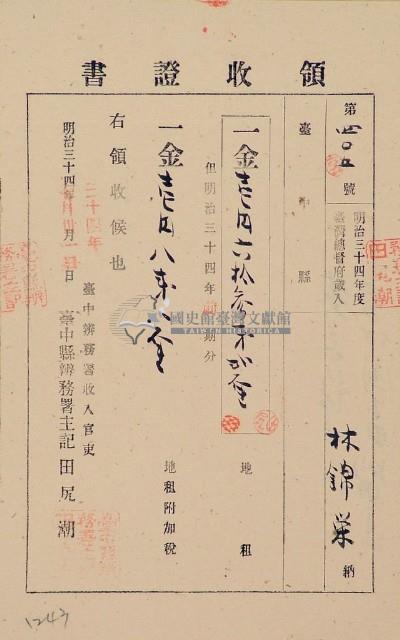 領收證書
第四〇五號
明治三十四年度
臺灣總督府歲入
臺中縣
林錦榮 納
一金壱円六拾參 地租
但明治三十四年 期分
一金壱円八 地租附加稅
右領收候也
臺中辨務署收入官吏
明治三十四年 月 日 臺中縣辨務署主記 田尻潮
國史館臺灣文獻館
TAIWAN HISTORICA
1243